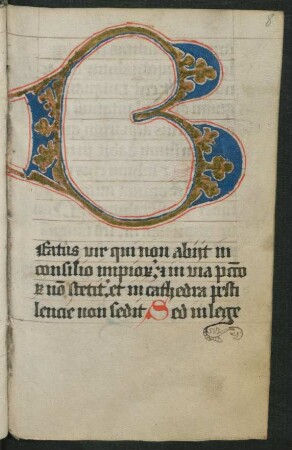 8
B
Eatus vir qui non abijt in
consilio impioꝝ: ⁊ in via pctō
ꝝ nō stetit: et in cathedra pesti
lencie non sedit Sed in lege